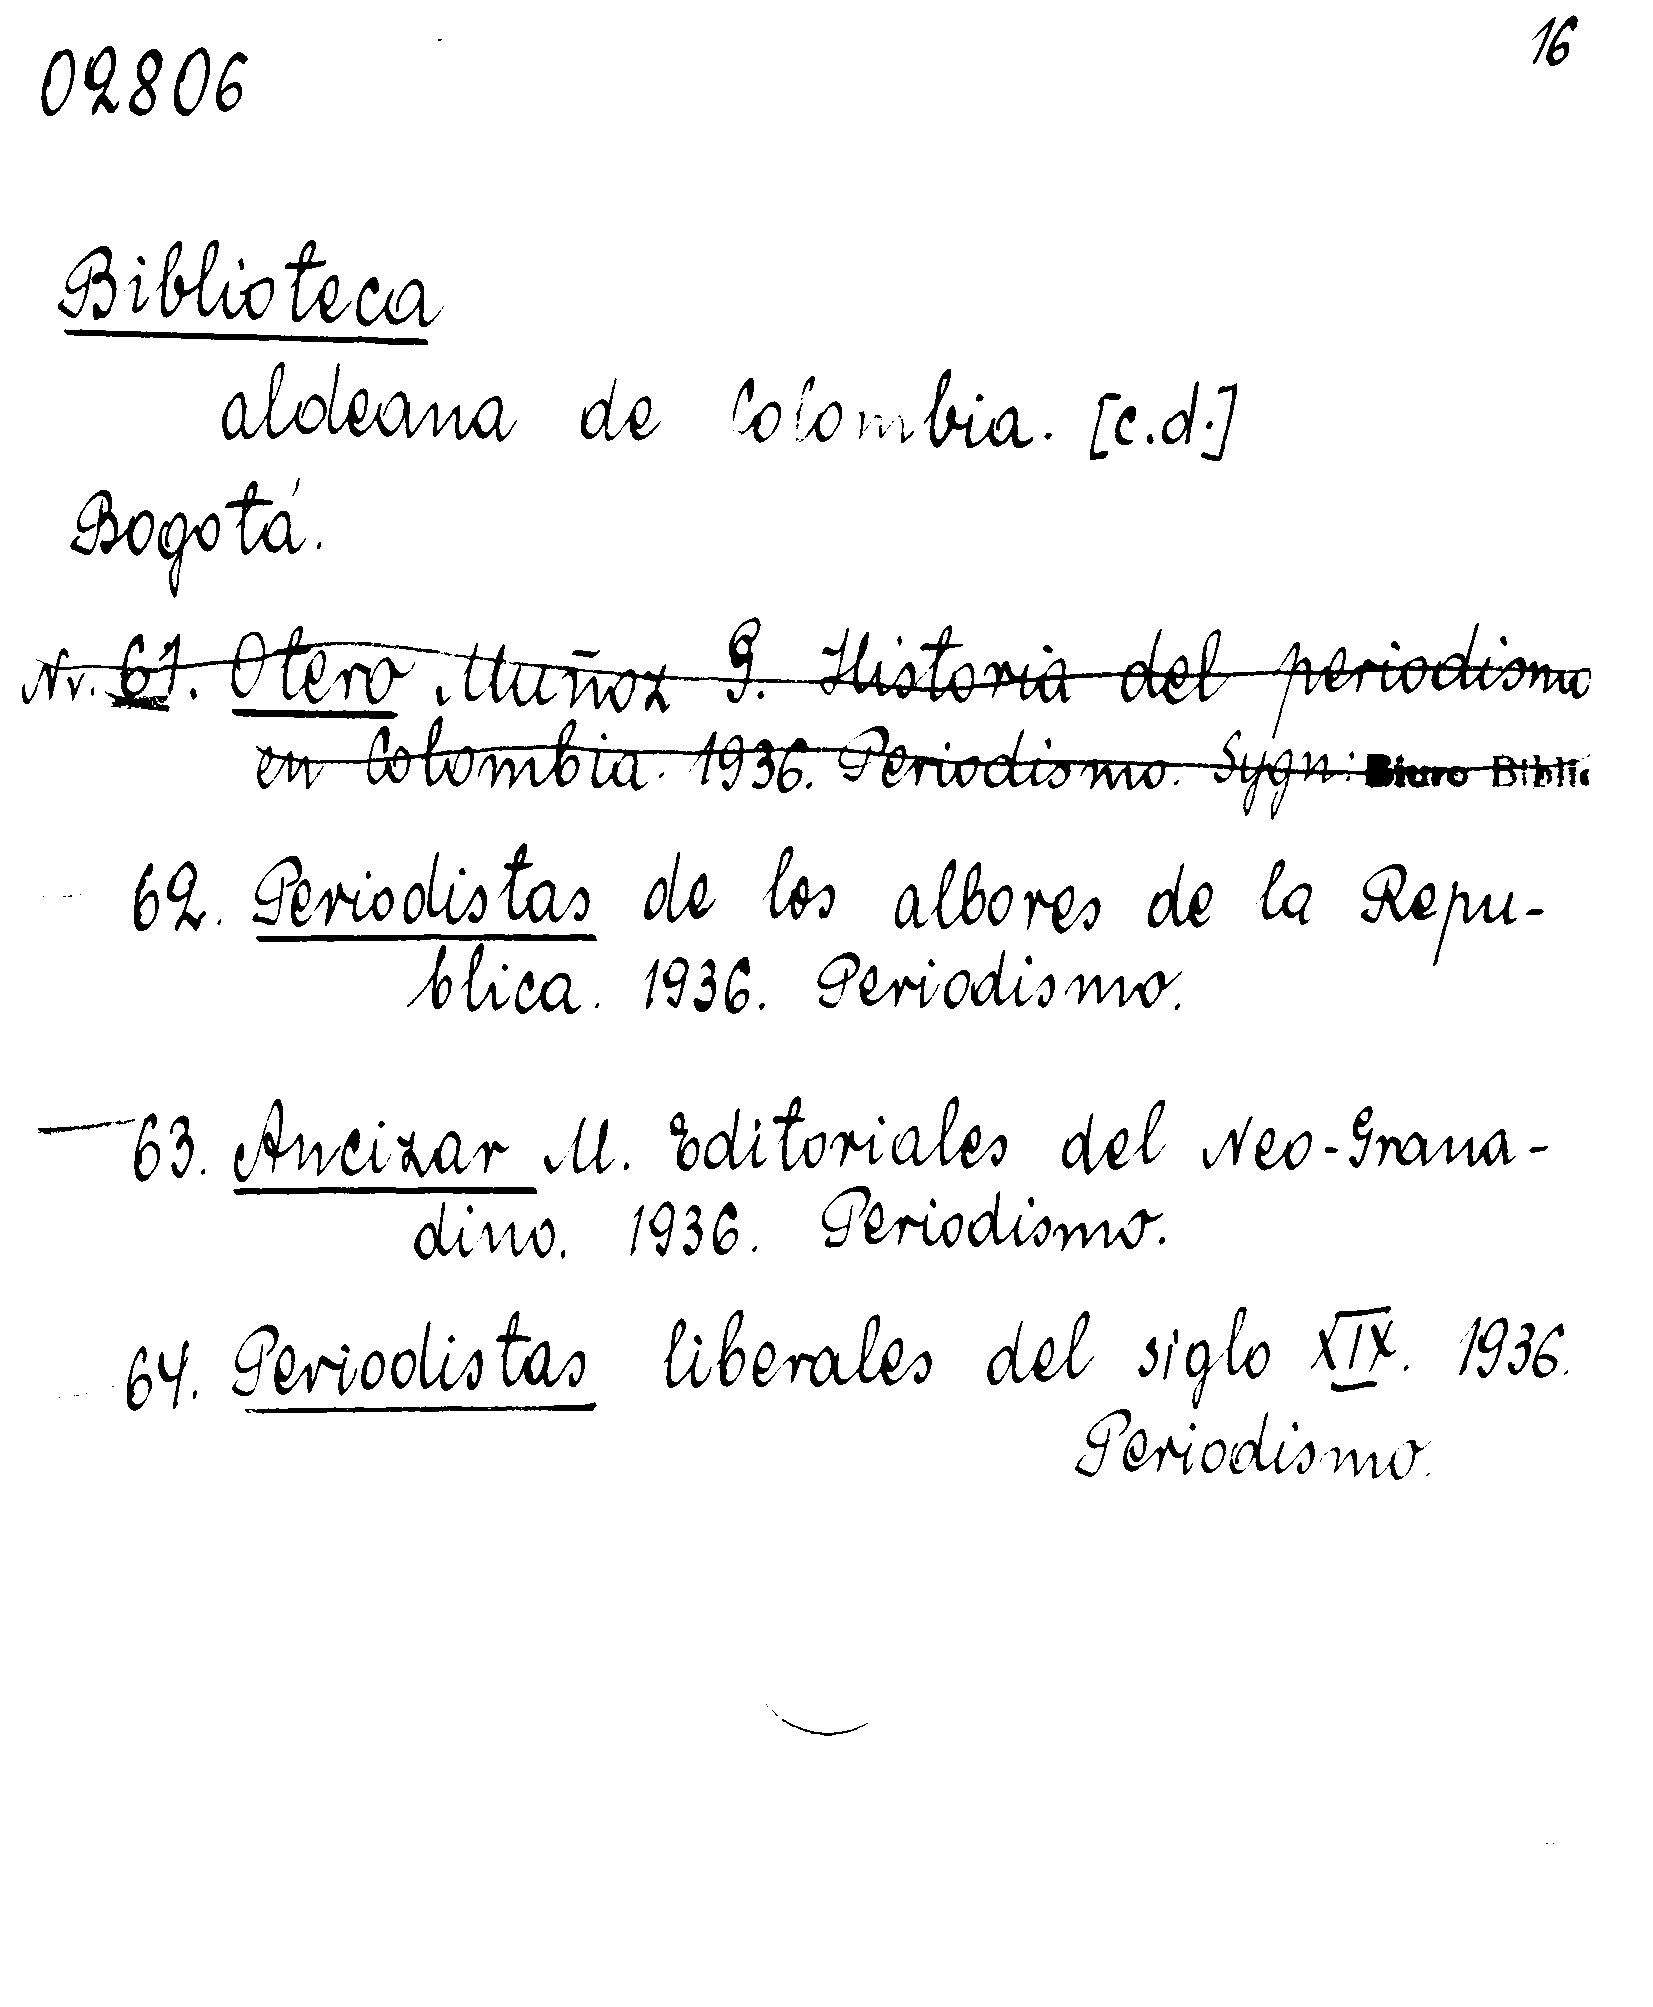 16
02806
Biblioteca
aldeana de Colombia. [c.d.]
Bogotá.
Nr. 61. Otero Muñoz G. Historia del periodismo
en Colombia. 1936. Periodismo. Sygn: Biuro Biblic
62. Periodistas de los albores de la Repu-
blica. 1936. Periodismo.
63. Ancizar M. Editoriales del Neo-Grana-
dino. 1936. Periodismo.
64. Periodistas liberales del siglo XIX. 1936.
Periodismo.